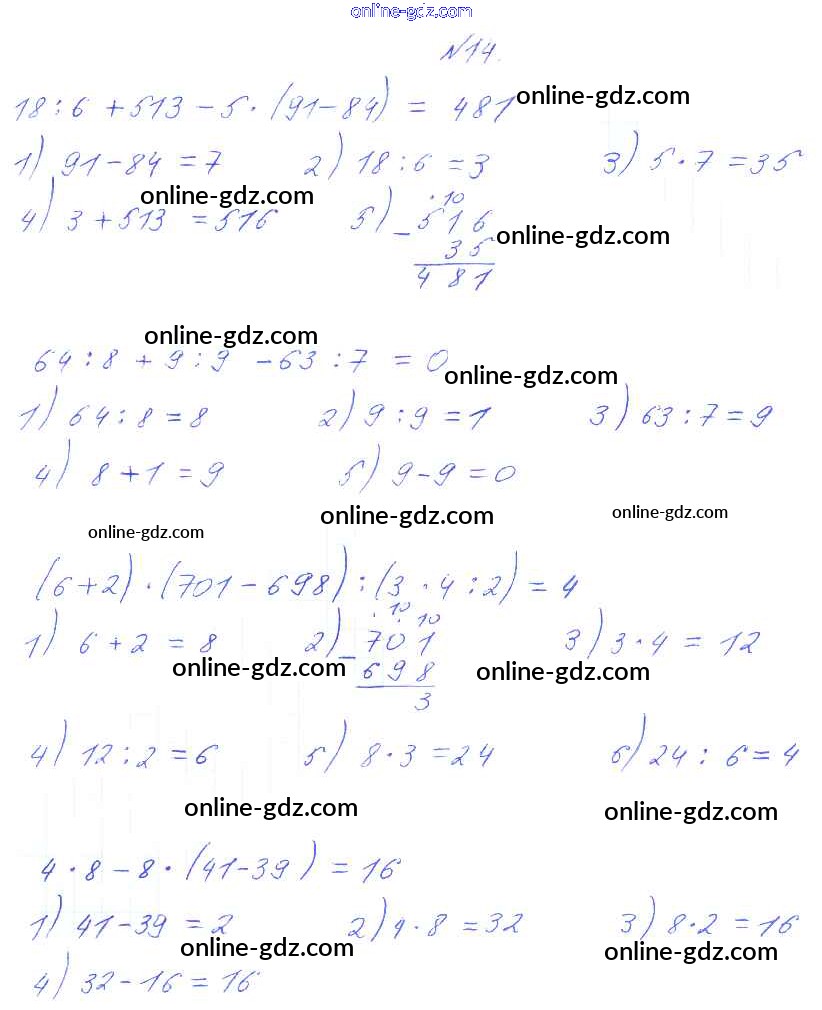 online-gdz.com
№14.
18 : 6 + 513 - 5 · (91 - 84) = 481 online-gdz.com
1) 91 - 84 = 7 2) 18 : 6 = 3 3) 5 · 7 = 35
online-gdz.com
· 10
4) 3 + 513 = 516 5) - 516
online-gdz.com
35
481
online-gdz.com
64 : 8 + 9 : 9 - 63 : 7 = 0
online-gdz.com
1) 64 : 8 = 8 2) 9 : 9 = 1 3) 63 : 7 = 9
4) 8 + 1 = 9 5) 9 - 9 = 0
online-gdz.com online-gdz.com
online-gdz.com
(6 + 2) · (701 - 698) : (3 · 4 : 2) = 4
· 10 · 10
1) 6 + 2 = 8 2) - 701 3) 3 · 4 = 12
online-gdz.com 698 online-gdz.com
3
4) 12 : 2 = 6 5) 8 · 3 = 24 6) 24 : 6 = 4
online-gdz.com online-gdz.com
4 · 8 - 8 · (41 - 39) = 16
1) 41 - 39 = 2 2) 4 · 8 = 32 3) 8 · 2 = 16
online-gdz.com online-gdz.com
4) 32 - 16 = 16